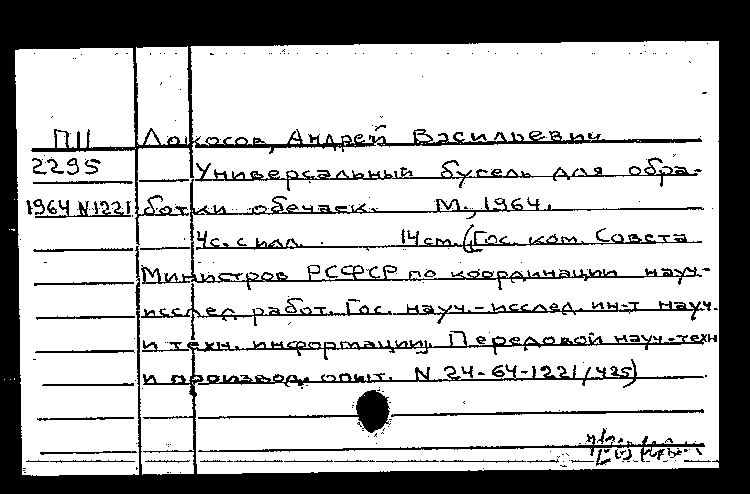 ПII Локосов, Андрей Васильевич
2295 Универсальный бусель для обра-
1964 N1221 ботки обечаек. М., 1964.
4с. с илл. 14 см. (Гос. ком. Совета
Министров РСФСР по координации науч-
исслед. работ. Гос. науч.-исслед. ин-т науч.
и техн. информации. Передовой науч.-техн
и производ. опыт. N 24-64-1221/425)